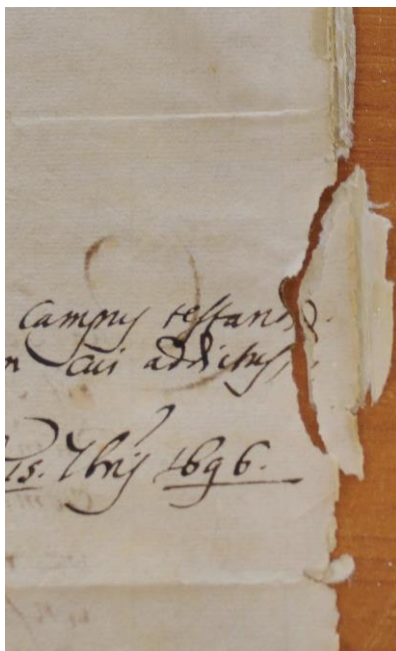 Campus testand
cui addictus,
15. 7bris 1696.